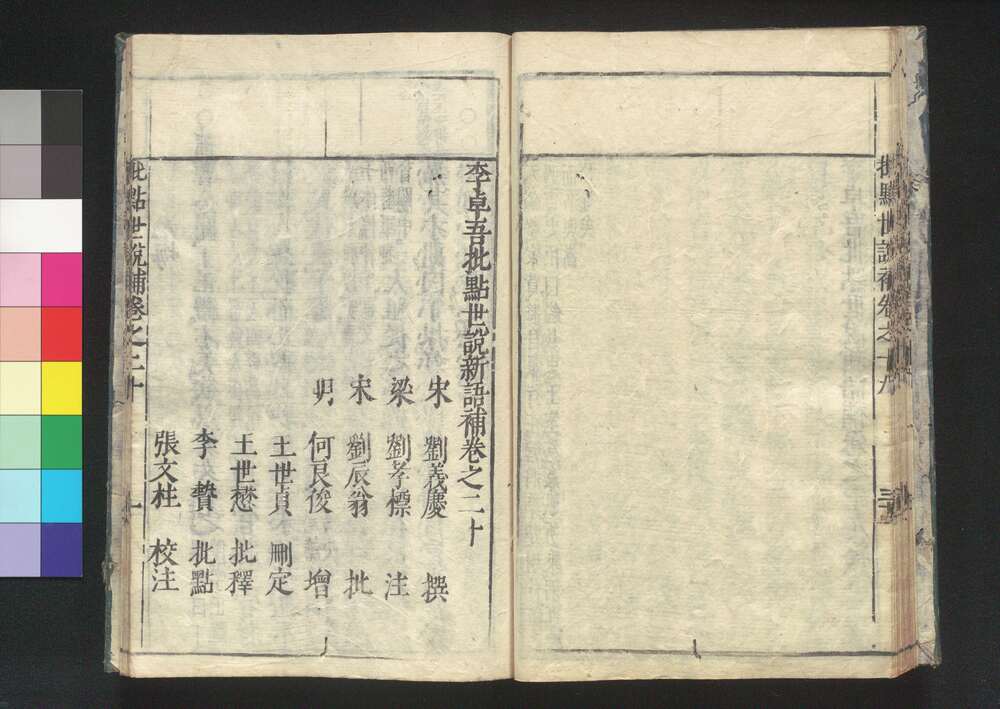 批點世說補卷之十九
李卓吾批點世說新語補卷之二十
宋 劉義慶 撰
梁 劉孝標 注
宋 劉辰翁 批
明 何良俊 增
王世貞 刪定
王世懋 批釋
李贄 批點
張文柱 校注
批點世說補卷之二十
一